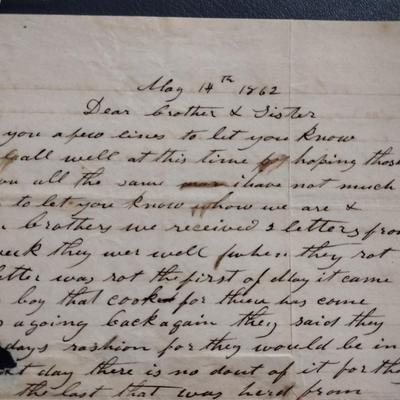 May 14th 1862
Dear brother & Sister
you a few lines to let you know
all well at this time hoping those
you all the same i have not much
to let you know whow we are &
brothers we received 2 letters from
week they wer well when they rot
letter was rot the first of May it came
boy that cook for them has come
agoing back again they said they
days rashion for they would be in
day there is no dout of it for the
the last that was herd from